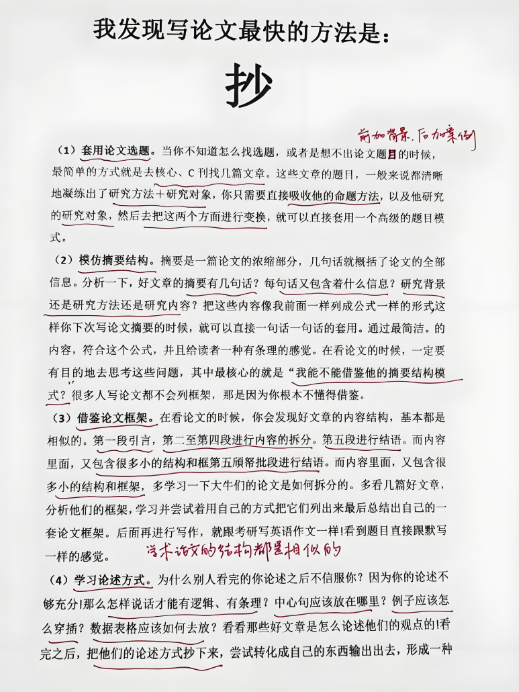 我发现写论文最快的方法是：
抄
前加背景，后加案例
（1）套用论文选题。当你不知道怎么找选题，或者是想不出论文题目的时候，
最简单的方式就是去核心、C 刊找几篇文章。这些文章的题目，一般来说都清晰
地凝练出了研究方法＋研究对象，你只需要直接吸收他的命题方法，以及他研究
的研究对象，然后去把这两个方面进行变换，就可以直接套用一个高级的题目模
式。
（2）模仿摘要结构。摘要是一篇论文的浓缩部分，几句话就概括了论文的全部
信息。分析一下，好文章的摘要有几句话？每句话又包含着什么信息？研究背景
还是研究方法还是研究内容？把这些内容像我前面一样列成公式一样的形式这
样你下次写论文摘要的时候，就可以直接一句话一句话的套用。通过最简洁。的
内容，符合这个公式，并且给读者一种有条理的感觉。在看论文的时候，一定要
有目的地去思考这些问题，其中最核心的就是“我能不能借鉴他的摘要结构模
式？”很多人写论文都不会列框架，那是因为你根本不懂得借鉴。
（3）借鉴论文框架。在看论文的时候，你会发现好文章的内容结构，基本都是
相似的。第一段引言，第二至第四段进行内容的拆分。第五段进行结语。而内容
里面，又包含很多小的结构和框第五頎帑批段进行结语。而内容里面，又包含很
多小的结构和框架，多学习一下大牛们的论文是如何拆分的。多看几篇好文章，
分析他们的框架，学习并尝试着用自己的方式把它们列出来最后总结出自己的一
套论文框架。后面再进行写作，就跟考研写英语作文一样！看到题目直接跟默写
一样的感觉。
学术论文的结构都是相似的
（4）学习论述方式。为什么别人看完的你论述之后不信服你？因为你的论述不
够充分！那么怎样说话才能有逻辑、有条理？中心句应该放在哪里？例子应该怎
么穿插？数据表格应该如何去放？看看那些好文章是怎么论述他们的观点的！看
完之后，把他们的论述方式抄下来，尝试转化成自己的东西输出出去，形成一种